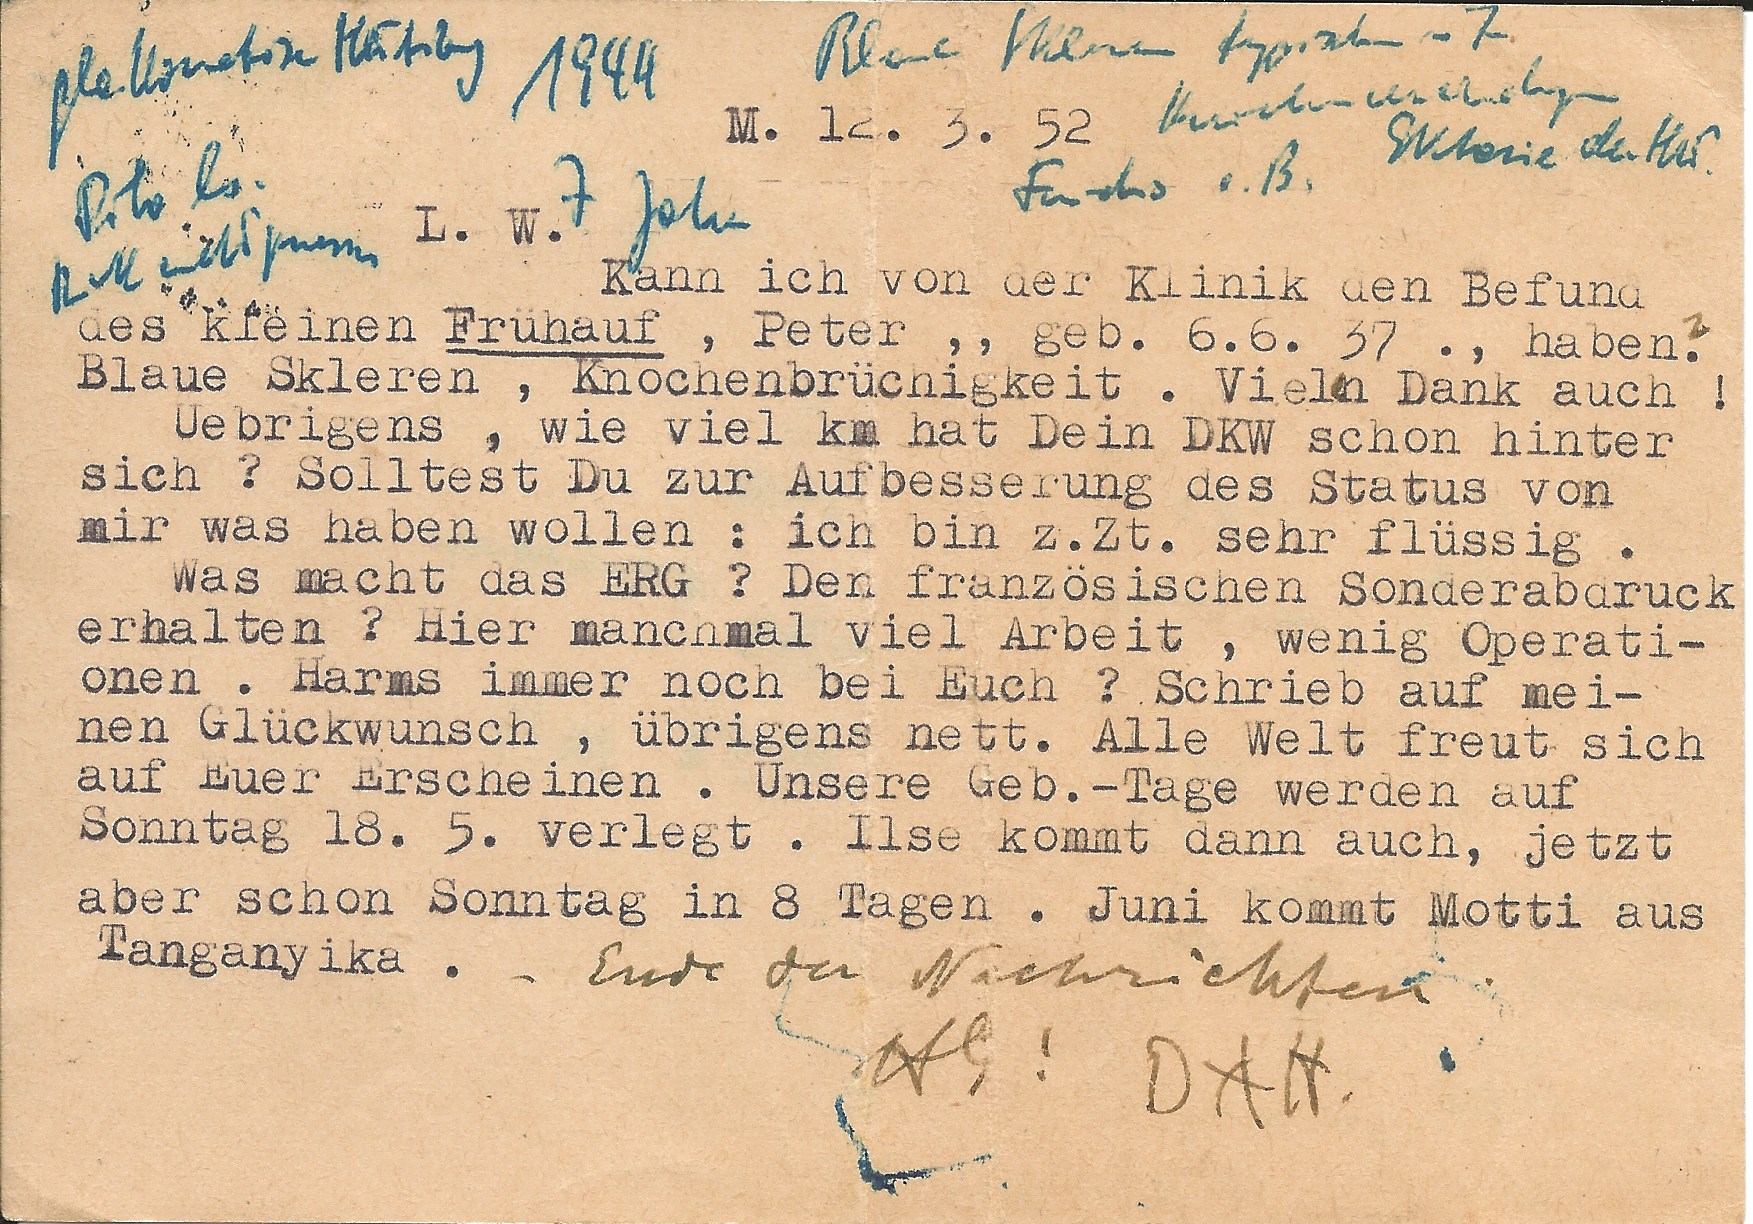 1944
Blaue Skleren typisch
M. 12. 3. 52
der
Fundus o. B.
L. W. 7 Jahre
nicht
Kann ich von der Klinik den Befund
des kleinen Frühauf , Peter ,, geb. 6.6. 37 ., haben?
Blaue Skleren , Knochenbrüchigkeit . Vieln Dank auch !
Uebrigens , wie viel km hat Dein DKW schon hinter
sich ? Solltest Du zur Aufbesserung des Status von
mir was haben wollen : ich bin z.Zt. sehr flüssig .
Was macht das ERG ? Den französischen Sonderabdruck
erhalten ? Hier manchmal viel Arbeit , wenig Operati-
onen . Harms immer noch bei Euch ? Schrieb auf mei-
nen Glückwunsch , übrigens nett. Alle Welt freut sich
auf Euer Erscheinen . Unsere Geb.-Tage werden auf
Sonntag 18. 5. verlegt . Ilse kommt dann auch, jetzt
aber schon Sonntag in 8 Tagen . Juni kommt Motti aus
Tanganyika . - Ende der Nachrichten .
HG ! DAH.